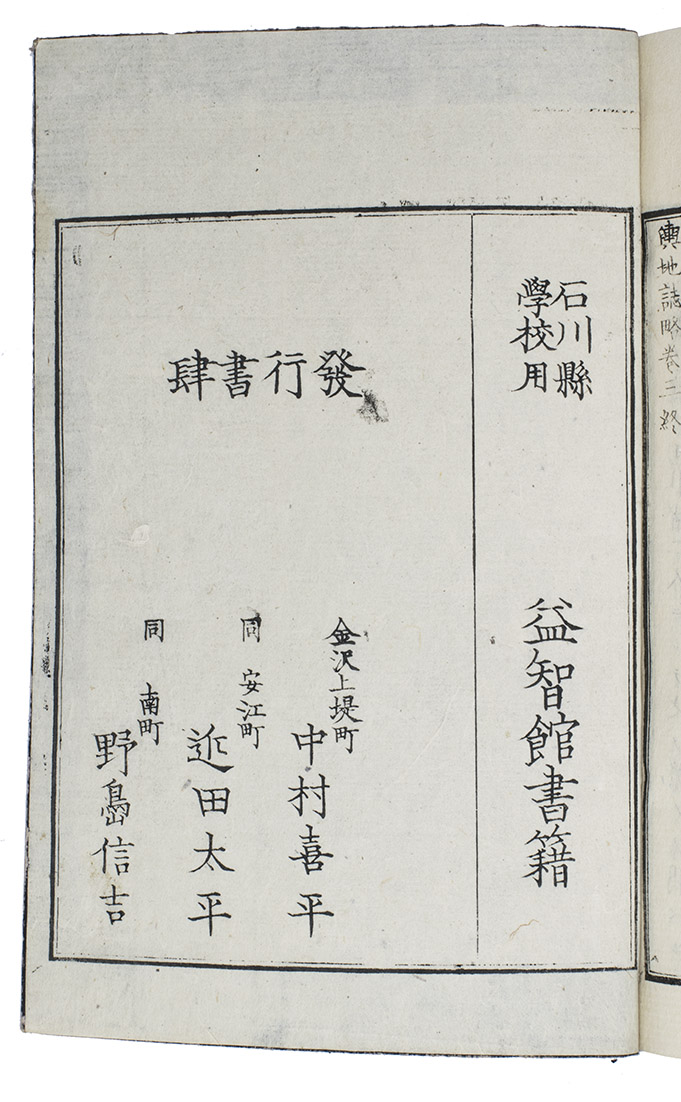 輿地誌略卷三終
石川縣
學校用
益智館書籍
發行書肆
金沢上堤町
中村喜平
同 安江町
近田太平
同 南町
野島信吉